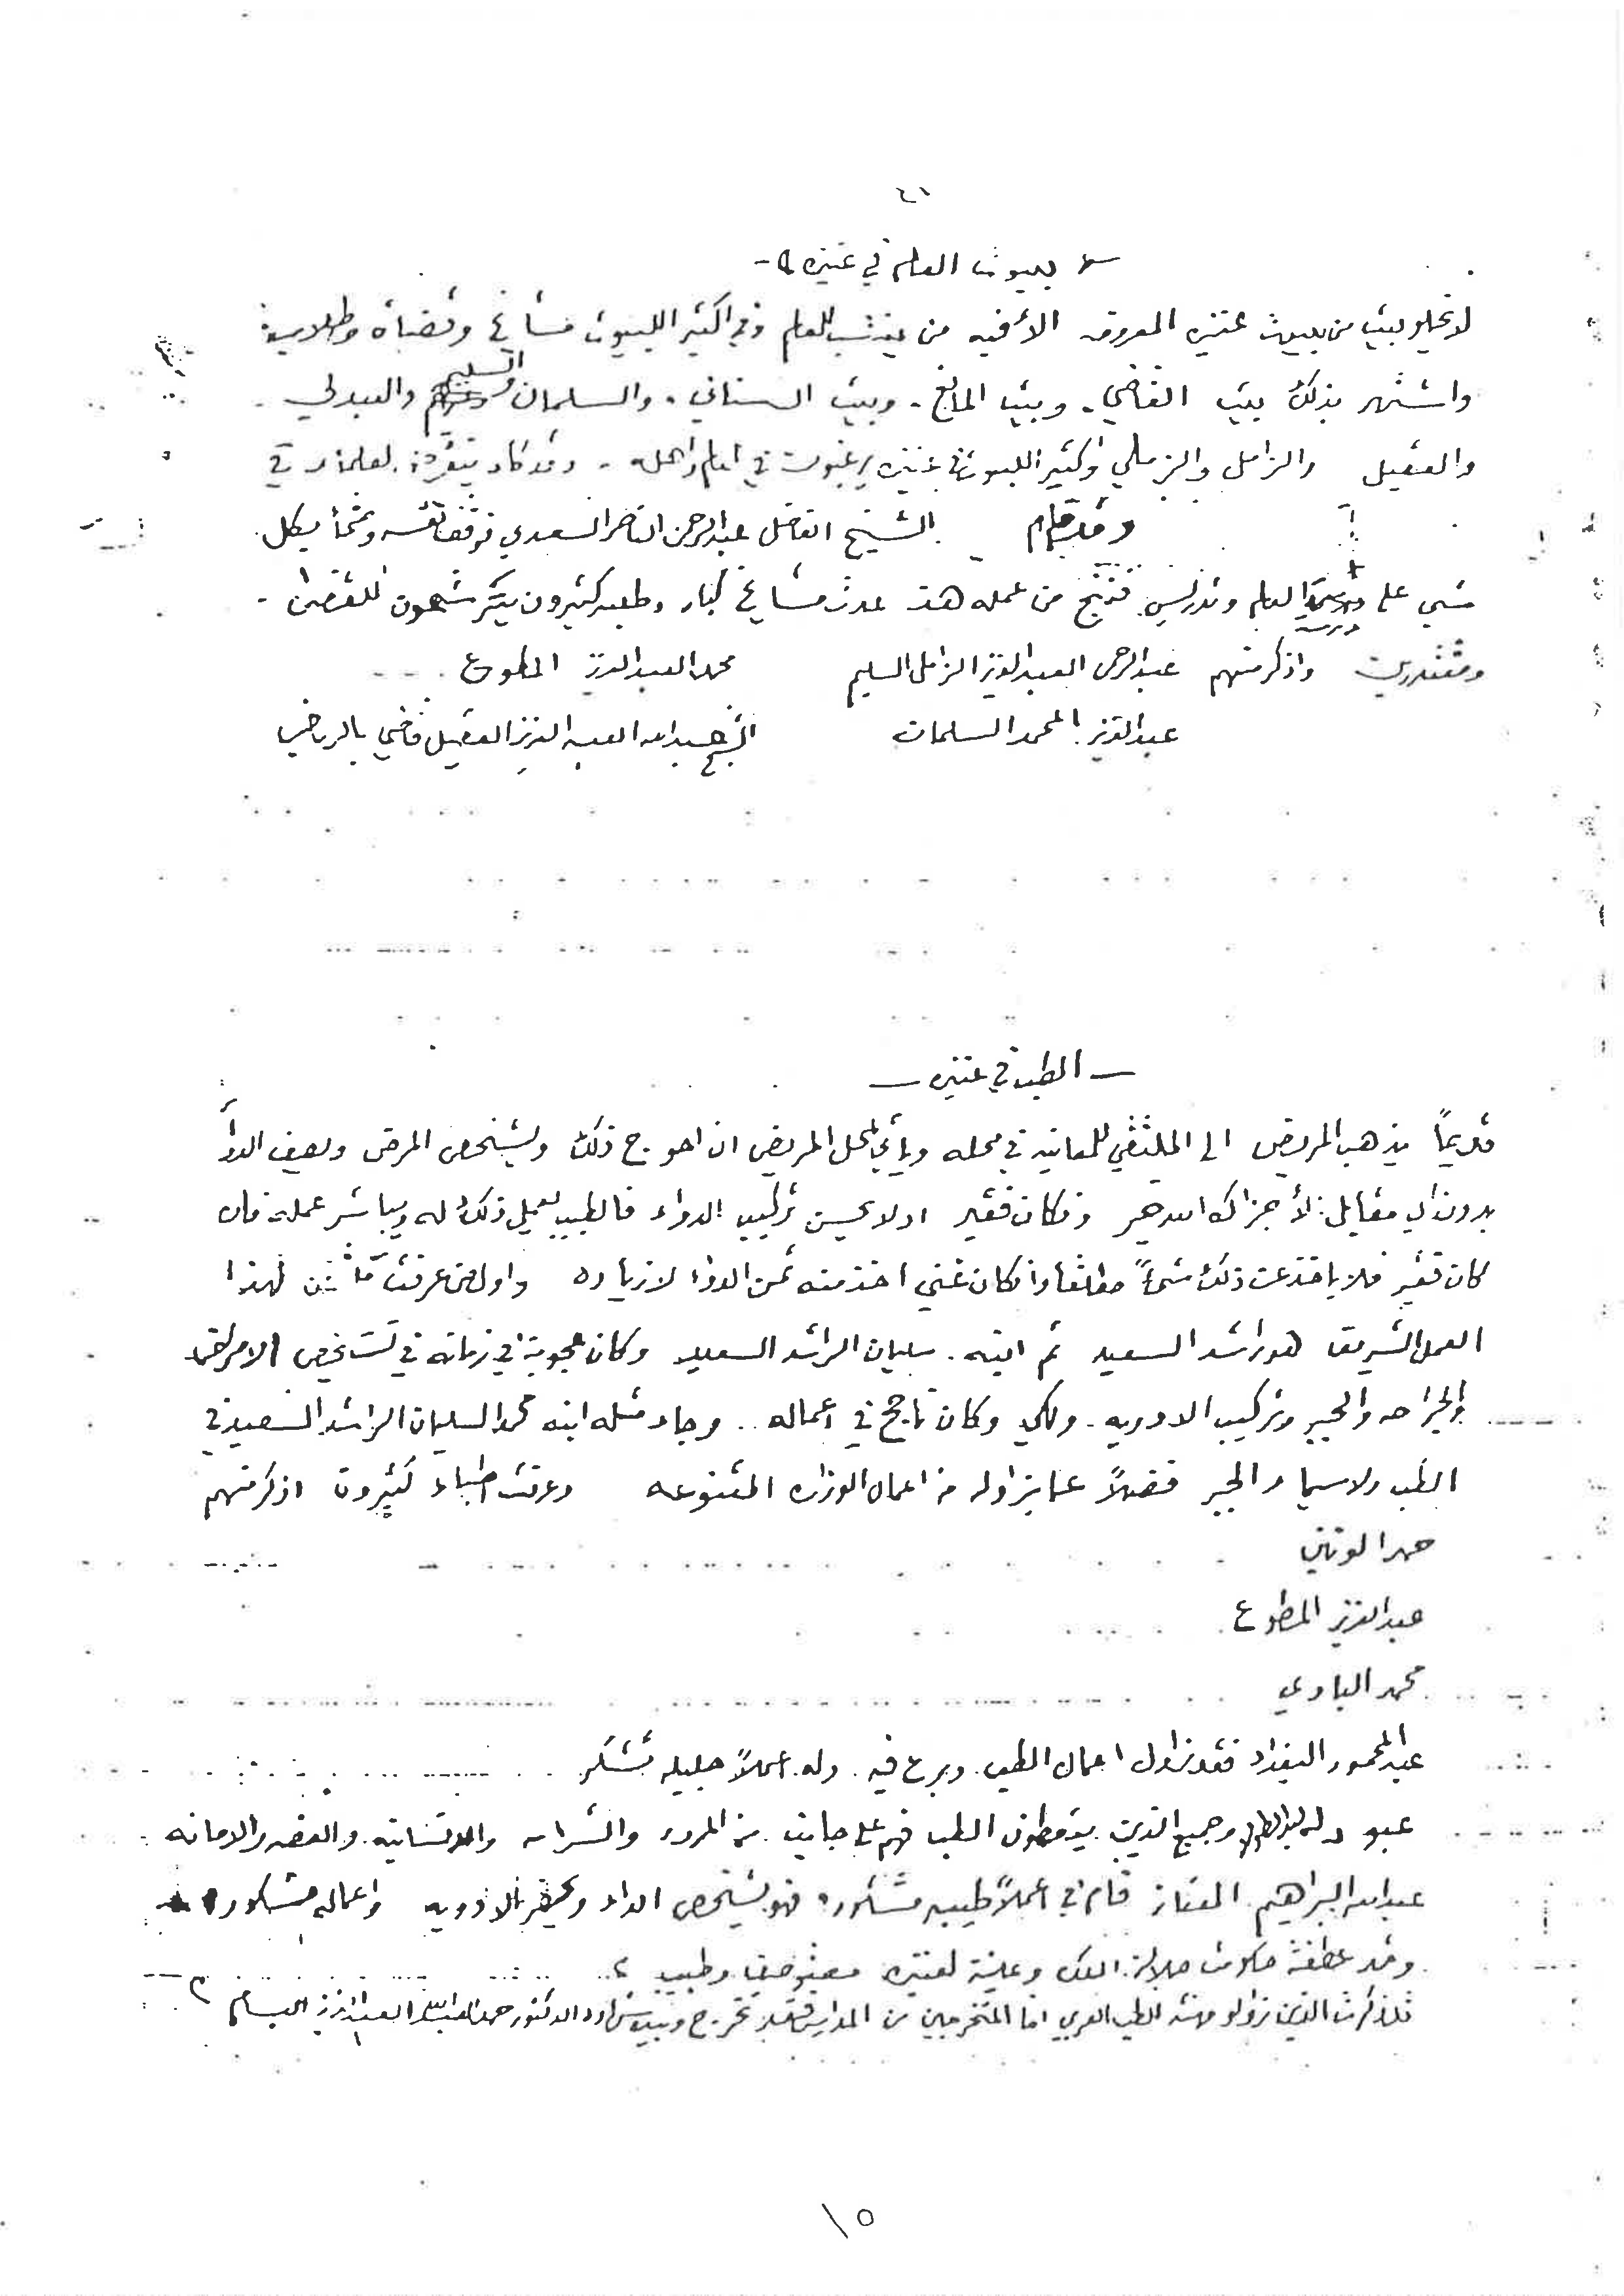 ٤١
بيوت العلم في عنيزه -
لا يخلو بيت من بيوت عنيزه المعروفه الا وفيه من ينتسب للعلم وفي اكثر البيوت مشائخ وقضاة وطلاب
واشتهر بذلك بيت القاضي. وبيت المانع. وبيت السناني. والسلمان السليم والعبدلي.
والعقيل والزامل والزملي وكثير البيوت في عنيزه يرغبون في العلم واهله. وقد كاد في
وقد قام الشيخ الفاضل عبدالرحمن الناصر السعدي بكل
شي على العلم وتدريس فنتج من عمله هذ عدت مشائخ كبار وطلبه كثيرون للقضى.
ومقتدرين واذكر منهم عبدالرحمن العبدالعزيز الزامل السليم محمد العبدالعزيز المطوع
عبدالعزيز المحمد السلمان الشيخ عبدالله العبد العزيز العقيل قاضي بالرياض
— الطب في عنيزه —
قديماً يذهب المريض الى للمعاينه في محله ويأتي لمحل المريض ان احوج ذلك ويشخص المرض ويصف الدوأ
بدون اي مقابل الأجر وان كان فقير او لا يحسن تركيب الدواء فا لطبيب يعمل ذلك له ويباشر عمله فان
كان فقير فلا ياخذ عن ذلك شيأً مطلقا وان كان غني اخذ منه ثمن الدواء لا زياده واول من عرفت لهذا
العمل الشريف هو راشد السعيد ثم ابنه. سليمان الراشد السعيد وكان عجوبة في زمانه في تشخيص الامراض
والجراحه والجبر وتركيب الادويه. والكي وكان ناجح في اعماله.. وجاء مثله ابنه محمد السليمان الراشد السعيد في
الطب ولاسيما والجبر فضلاً عما يزاوله من اعمال المتنوعه وعرفت اطباء كثيرون اذكر منهم
حمد الوتني
عبدالعزيز المطوع
محمد الباوي
عبدالمحمود البغداد فقد زاول اعمال الطب. وبرع فيه. وله اعملاً جليله تشكر
وجميع الذين الطب فهم على جانب من المروءه والشرا والانسانيه والعفه والامانه
عبدالله البراهيم القفاز قام في اعملاً طيبيه مشكوره فهو يشخص الداء ويحضر الادويه واعماله مشكوره
وقد عطفت حكومت جلالة الملك وعينة لعنيزه وطبيب
قلذكرت الذين زاولو مهنة الطب العربي اما المتخرجين من المدارس فقد تخرج الدكتور حمد العبدالله العبدالعزيز البسام
١٥